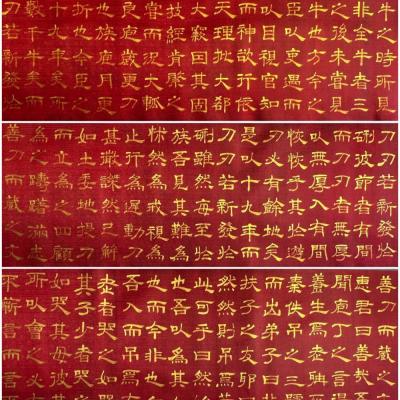 牛之時所見
非全牛者三
之後未嘗見
牛也方今之
臣以神遇而
以目視官知
而神欲行依
天理批大郤
大窾因其固
技經肯綮之
嘗而況大軱
良庖歲更
也族庖月更
折也今臣之
十九年矣所
數千牛矣而
刀刃若新發於
刀刃若新發於
硎彼節者有間
而刀刃者無厚
以無厚入有間
恢恢乎其於遊
刃必有餘地矣
是以十九年而
刀刃若新發於
硎雖然每至於
族吾見其難為
怵然為戒視為
止行為遲動刀
甚微謋然已解
如土委地提刀
而立為之四顧
為之躊躇滿志
善刀而藏之文
善刀而藏之文
惠君曰善哉吾
聞庖丁之言得
養生焉老聃死
秦失弔之三號
而出弟子曰非
夫子之友邪曰
然然則弔焉若
此可乎曰然始
也吾以為其人
也而今非也向
吾入而弔焉有
老者哭之如哭
其子少者哭之
如哭其母彼其
所以會之必有
不蘄言而言不